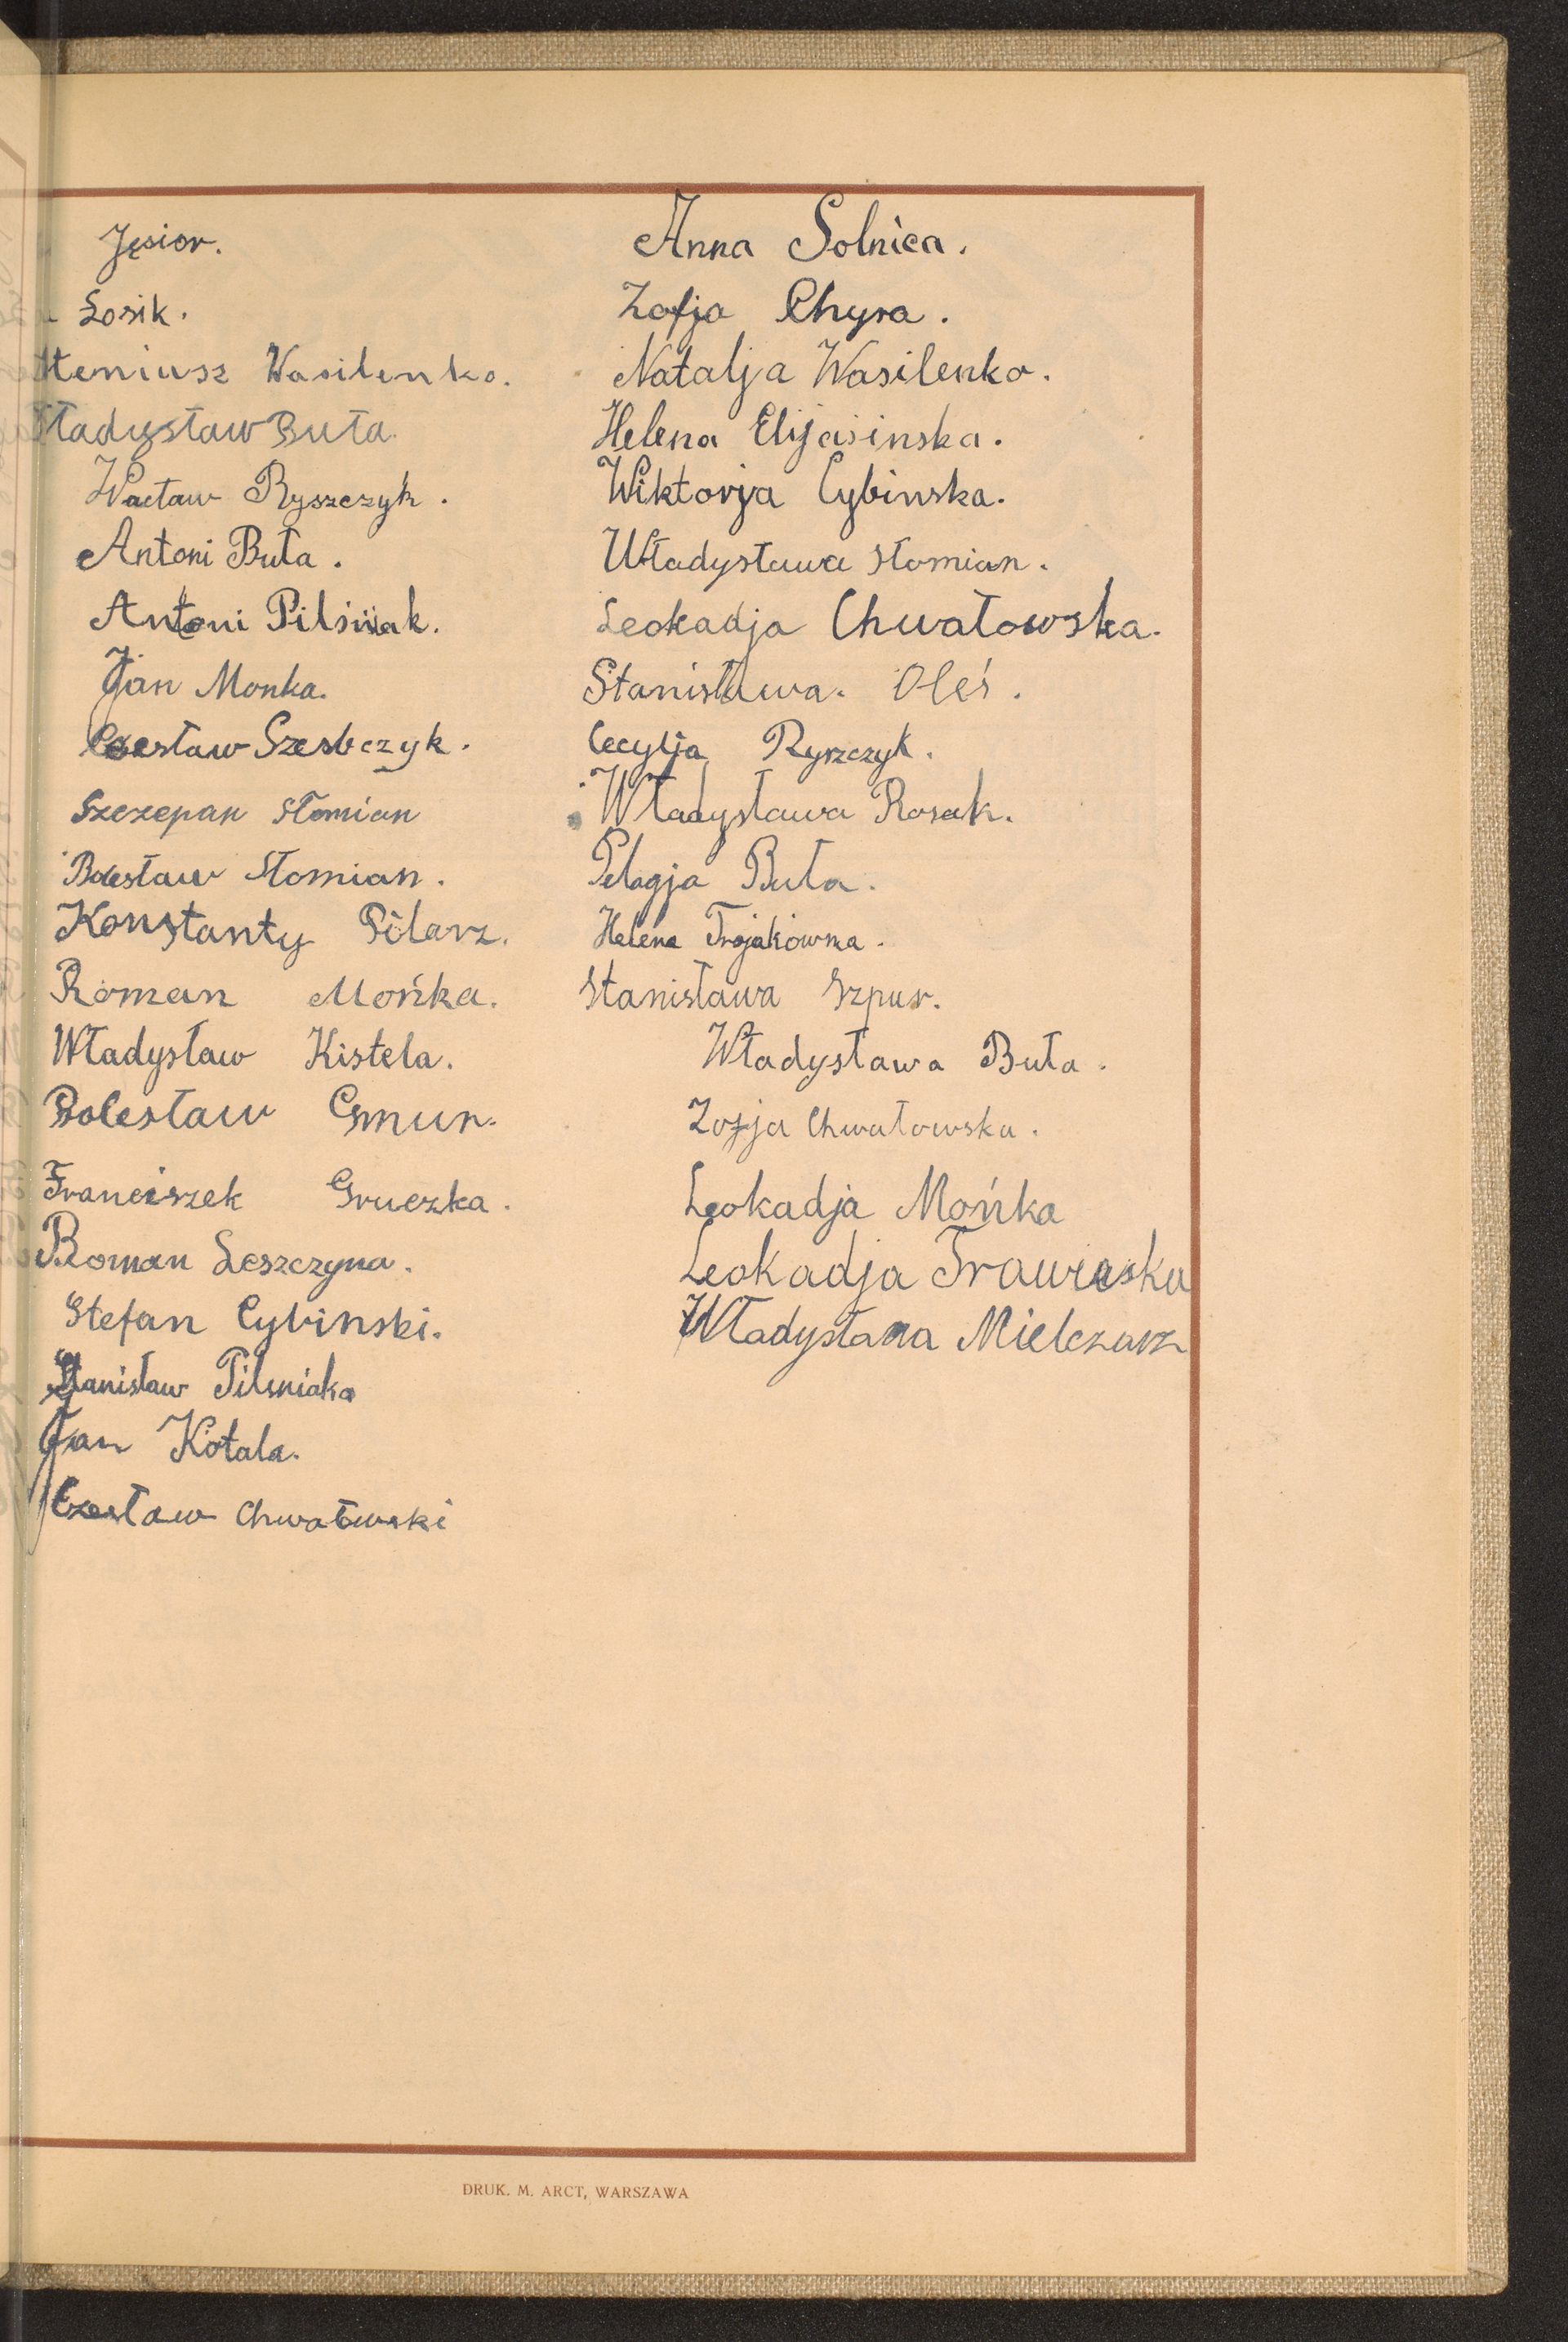 Jęsior.
Łosik.
Wasilenko.
Władysław Buła.
Wacław Ryszczyk.
Antoni Buła.
Antoni Pilśniak.
Jan Monka.
Czesław
Szczepan Słomian
Bolesław Słomian.
Konstanty Pilarz.
Roman Mońka.
Władysław Kistela.
Bolesław Gmur.
Franciszek Gruczka.
Roman Leszczyna.
Stefan Cybinski.
Stanisław Pilsniaka
Jan Kotala.
Czesław Chwałowski
Anna Solnica.
Zofja Chyra.
Natalja Wasilenko.
Helena Elijasinska.
Wiktorja Cybinska.
Władysława Słomian.
Leokadja Chwałowska.
Stanisława. Oleś.
Cecylja Ryszczyk.
Władysława Rosak.
Pelagja Buła.
Helena Trojakówna.
Stanisława Szpur.
Władysława Buła.
Zofja Chwałowska.
Leokadja Mońka
Leokadja Trawinska
Władysława Mielczarz
DRUK. M. ARCT, WARSZAWA